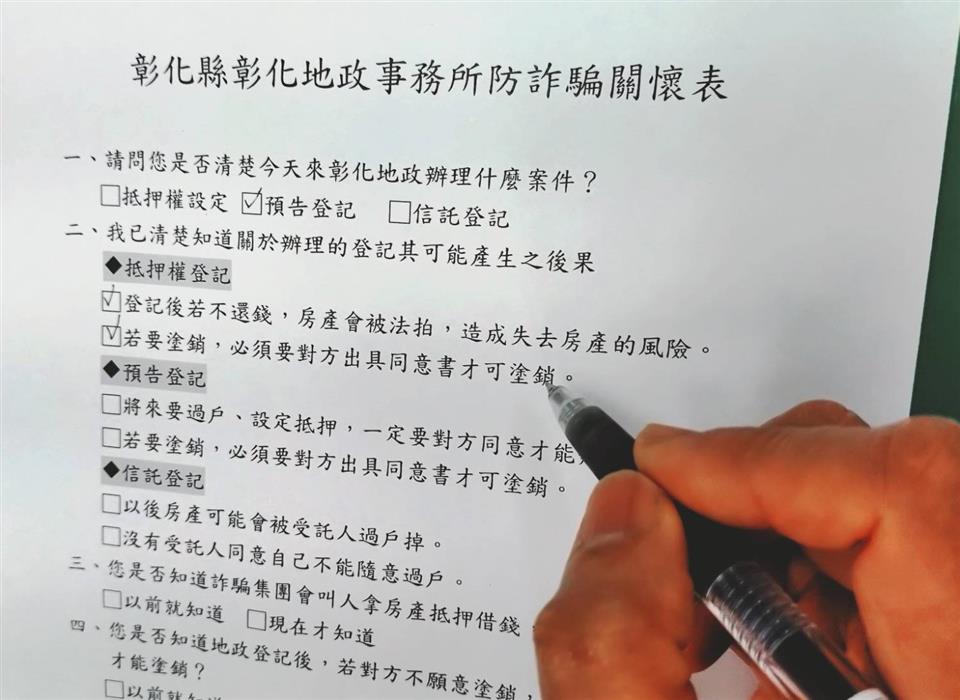 彰化縣彰化地政事務所防詐騙關懷表
一、請問您是否清楚今天來彰化地政辦理什麼案件？
□抵押權設定 ☑預告登記 □信託登記
二、我已清楚知道關於辦理的登記其可能產生之後果
◆抵押權登記
☑登記後若不還錢，房產會被法拍，造成失去房產的風險。
☑若要塗銷，必須要對方出具同意書才可塗銷。
◆預告登記
□將來要過戶、設定抵押，一定要對方同意才能
□若要塗銷，必須要對方出具同意書才可塗銷。
◆信託登記
□以後房產可能會被受託人過戶掉。
□沒有受託人同意自己不能隨意過戶。
三、您是否知道詐騙集團會叫人拿房產抵押借錢
□以前就知道 □現在才知道
四、您是否知道地政登記後，若對方不願意塗銷，
才能塗銷？
□以前就知道